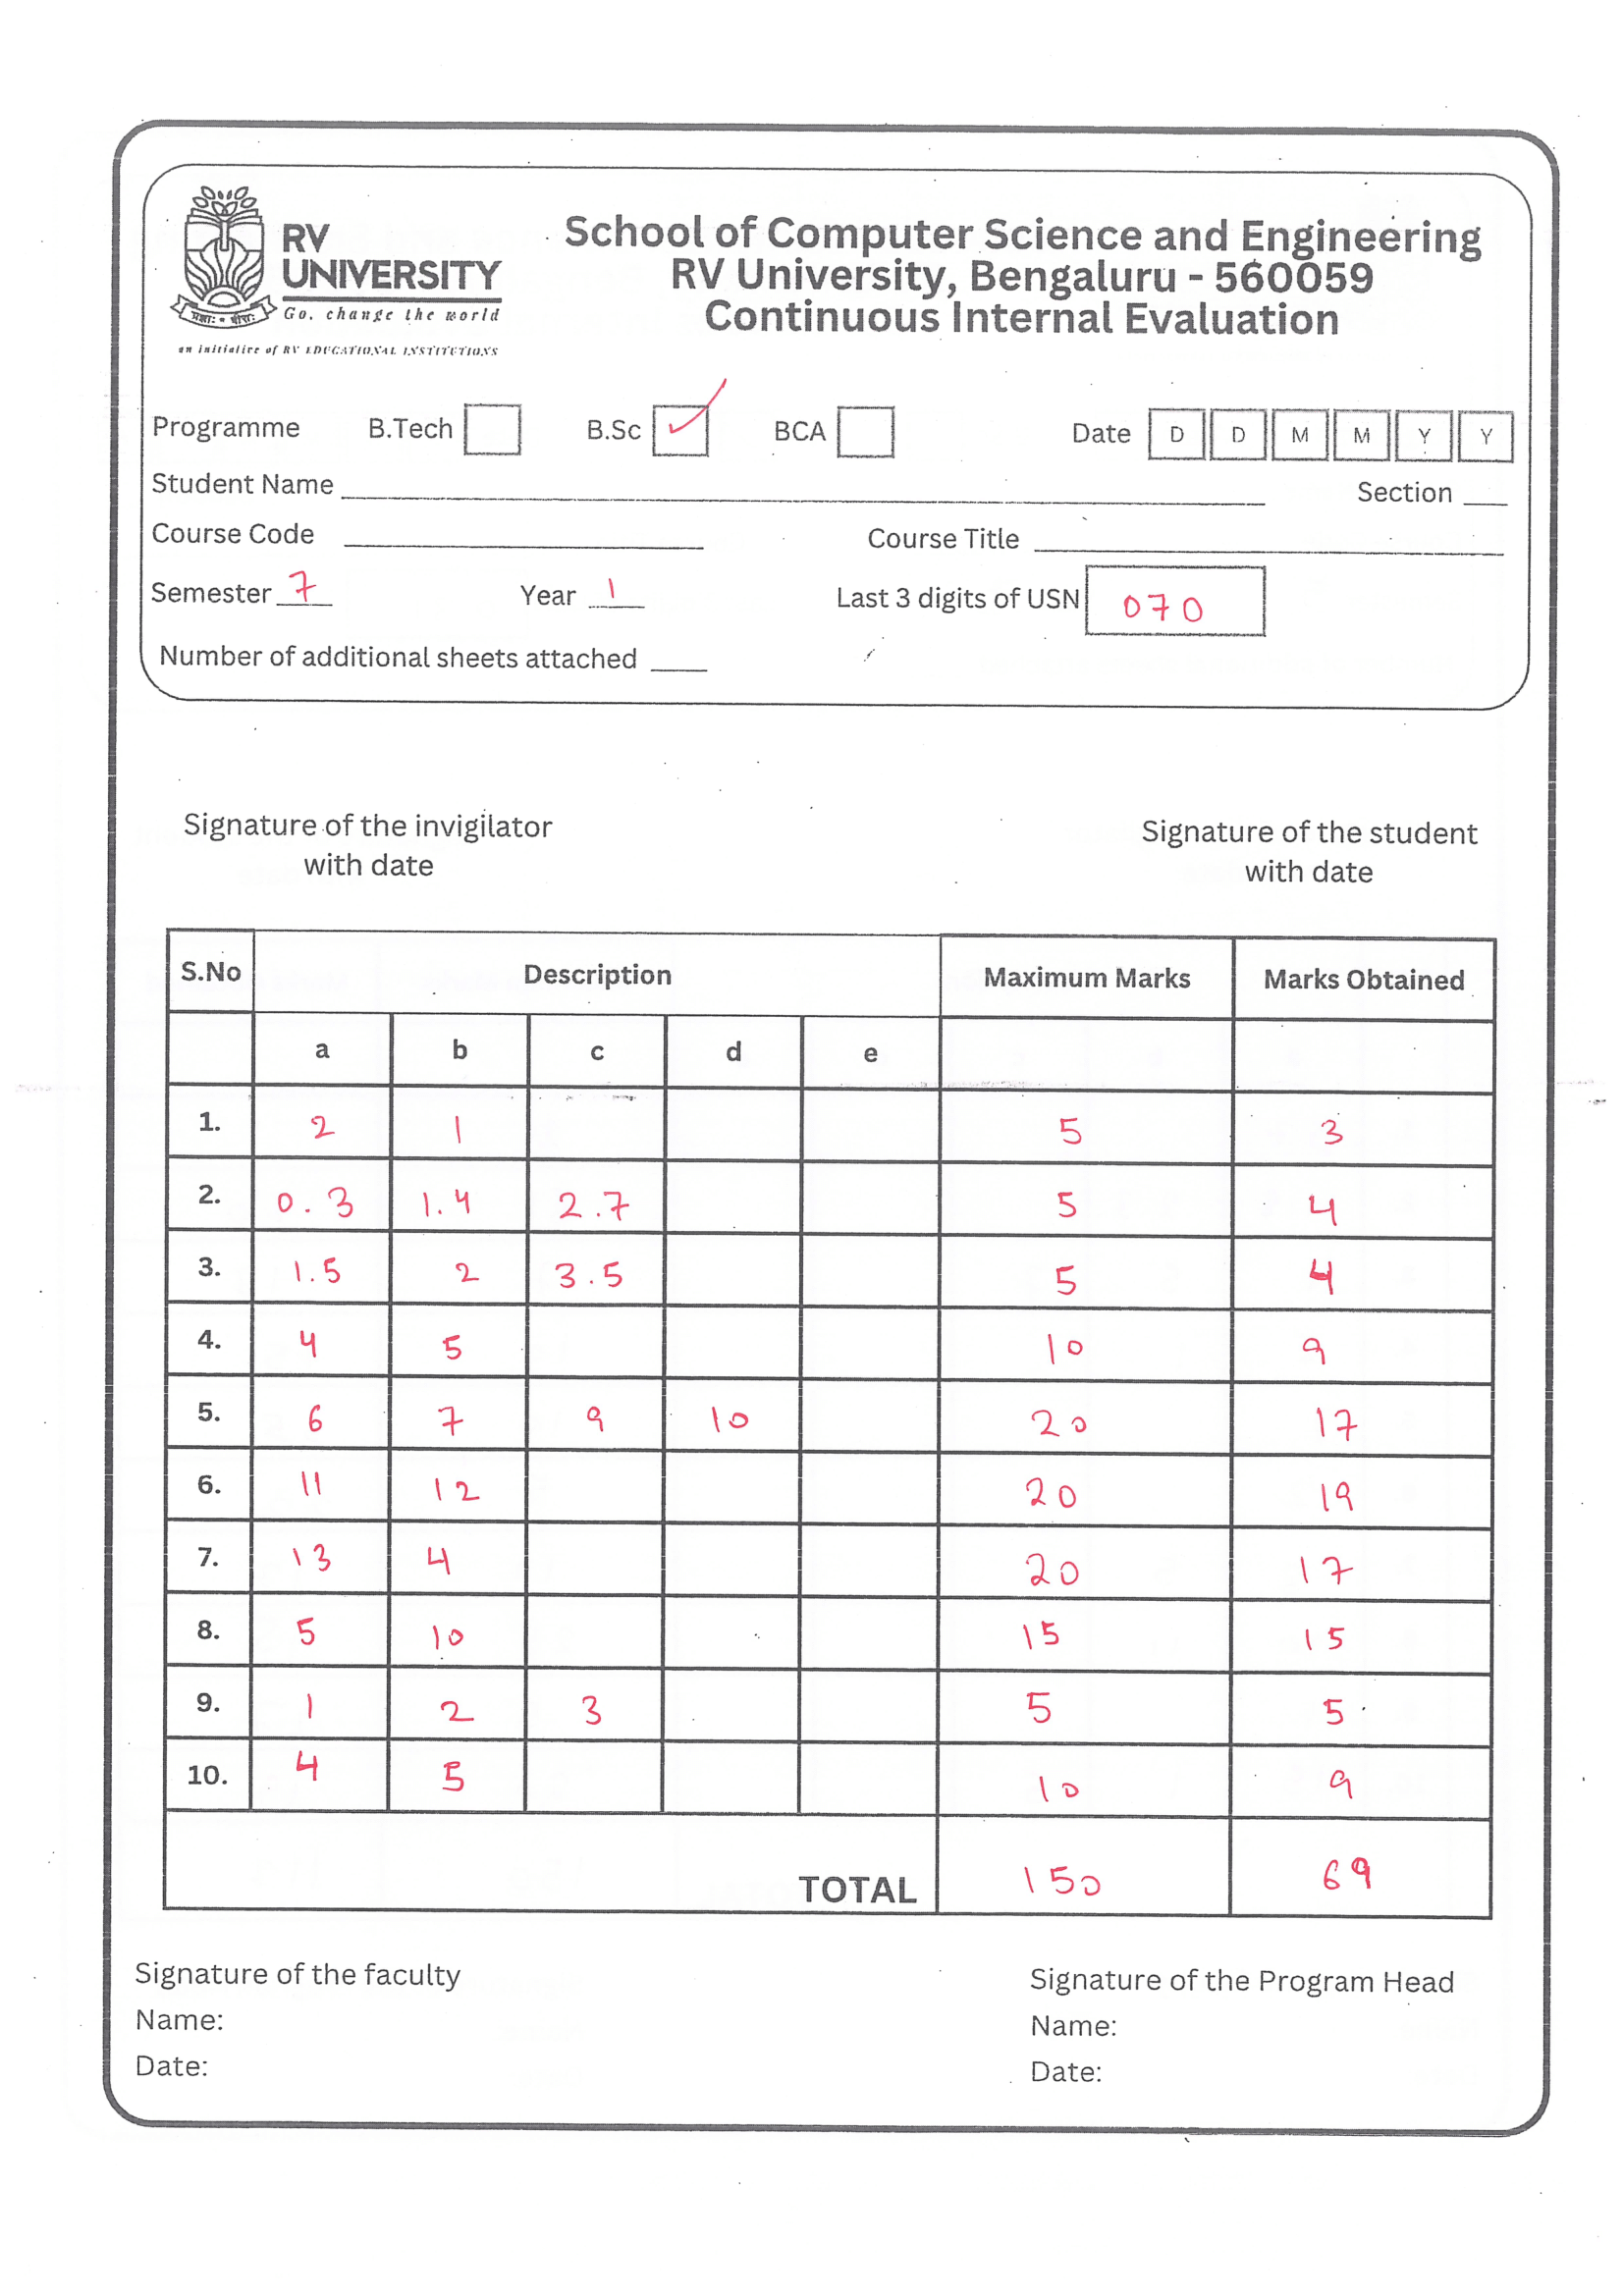 RV
UNIVERSITY
Go, change the world
an initiative of RV EDUCATIONAL INSTITUTIONS
School of Computer Science and Engineering
RV University, Bengaluru - 560059
Continuous Internal Evaluation
Programme B.Tech B.Sc ✓ BCA Date D D M M Y Y
Student Name Section
Course Code Course Title
Semester 7 Year 1 Last 3 digits of USN 070
Number of additional sheets attached
Signature of the invigilator
with date
Signature of the student
with date
S.No Description Maximum Marks Marks Obtained
a b c d e
1. 2 1 5 3
2. 0.3 1.4 2.7 5 4
3. 1.5 2 3.5 5 4
4. 4 5 10 9
5. 6 7 9 10 20 17
6. 11 12 20 19
7. 13 4 20 17
8. 5 10 15 15
9. 1 2 3 5 5
10. 4 5 10 9
TOTAL 150 69
Signature of the faculty
Name:
Date:
Signature of the Program Head
Name:
Date: